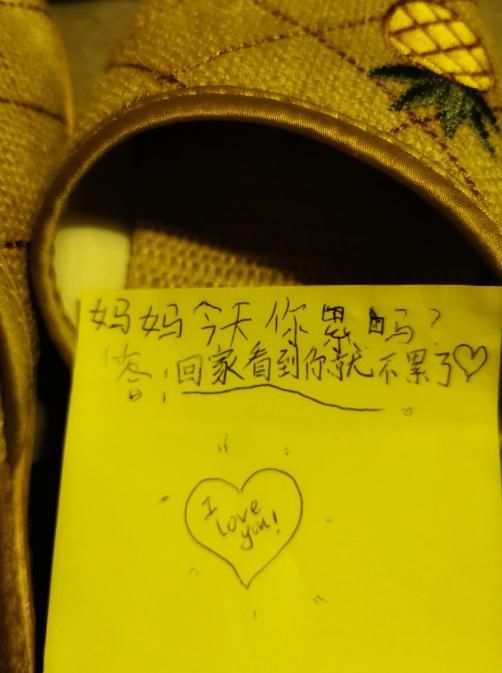 妈妈今天你累吗?
答:回家看到你就不累了♡
I
love
you!